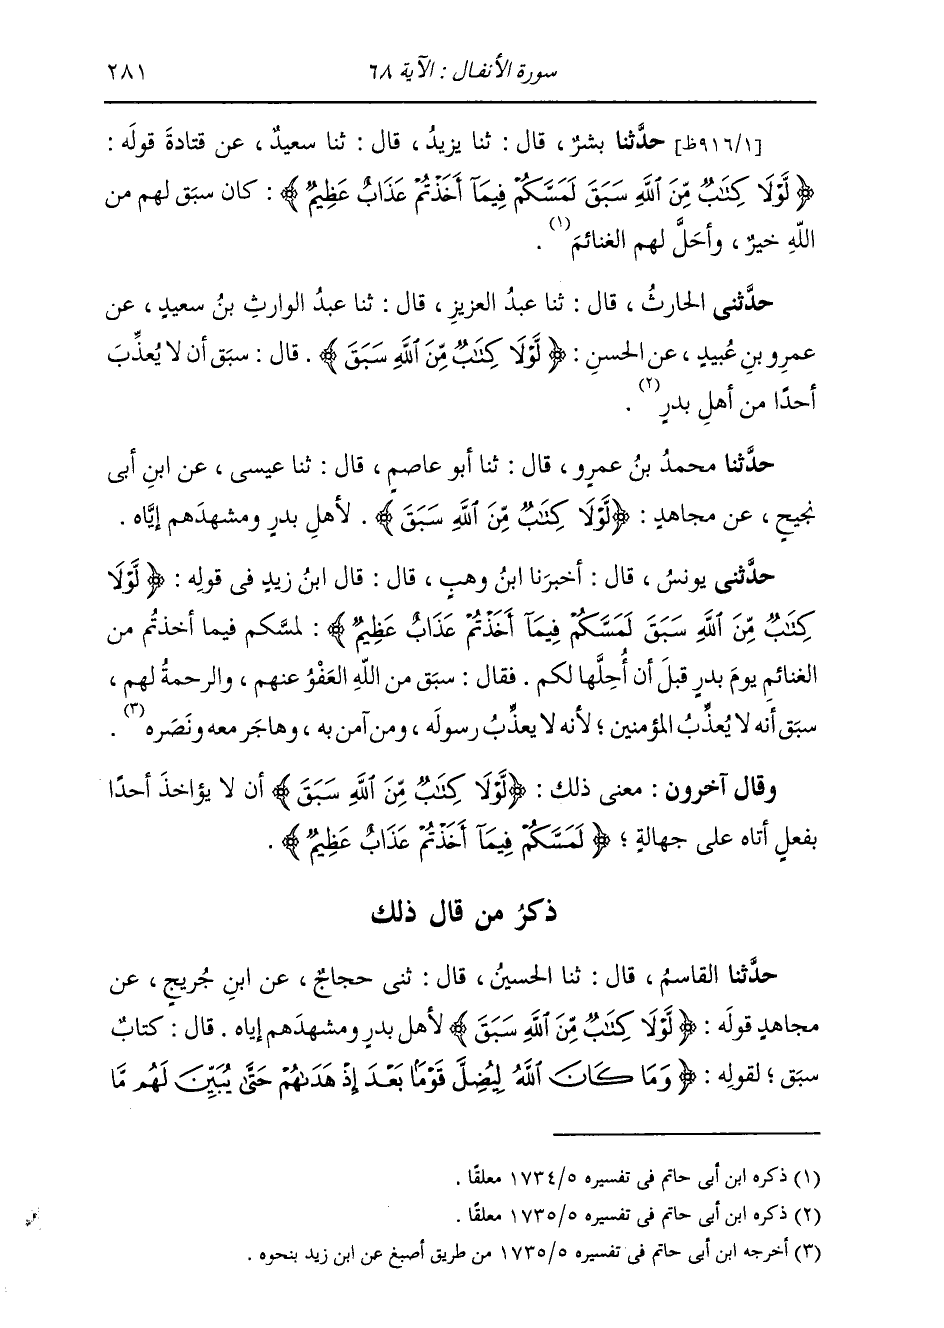 سورة الأنفال : الآية ٦٨
٢٨١
[٩١٦/١ظ] حدَّثنا بشرٌ ، قال : ثنا يزيدُ ، قال : ثنا سعيدٌ ، عن قتادةَ قولَه :
﴿ لَّوْلَا كِتَٰبٌ مِّنَ ٱللَّهِ سَبَقَ لَمَسَّكُمْ فِيمَآ أَخَذْتُمْ عَذَابٌ عَظِيمٌ ﴾ : كان سبَق لهم من
اللهِ خيرٌ ، وأحَلَّ لهم الغنائمَ (١) .
حدَّثنى الحارثُ ، قال : ثنا عبدُ العزيزِ ، قال : ثنا عبدُ الوارثِ بنُ سعيدٍ ، عن
عمرِو بنِ عُبيدٍ ، عن الحسنِ : ﴿ لَّوْلَا كِتَٰبٌ مِّنَ ٱللَّهِ سَبَقَ ﴾ . قال : سبَق أن لا يُعذِّبَ
أحدًا من أهلِ بدرٍ (٢) .
حدَّثنا محمدُ بنُ عمرٍو ، قال : ثنا أبو عاصمٍ ، قال : ثنا عيسى ، عن ابنِ أبى
نجيحٍ ، عن مجاهدٍ : ﴿لَّوْلَا كِتَٰبٌ مِّنَ ٱللَّهِ سَبَقَ ﴾ . لأهلِ بدرٍ ومشهدَهم إيَّاه .
حدَّثنى يونسُ ، قال : أخبرَنا ابنُ وهبٍ ، قال : قال ابنُ زيدٍ فى قولِه : ﴿ لَّوْلَا
كِتَٰبٌ مِّنَ ٱللَّهِ سَبَقَ لَمَسَّكُمْ فِيمَآ أَخَذْتُمْ عَذَابٌ عَظِيمٌ ﴾ : لمسَّكم فيما أخذتُم من
الغنائمِ يومَ بدرٍ قبلَ أن أُحِلَّها لكم . فقال : سبَق من اللهِ العَفْوُ عنهم ، والرحمةُ لهم ،
سبَق أنه لا يُعذِّبُ المؤمنين ؛ لأنه لا يعذِّبُ رسولَه ، ومن آمن به ، وهاجَر معه ونَصَره (٣) .
وقال آخرون : معنى ذلك : ﴿لَّوْلَا كِتَٰبٌ مِّنَ ٱللَّهِ سَبَقَ ﴾ أن لا يؤاخذَ أحدًا
بفعلٍ أتاه على جهالةٍ ؛ ﴿ لَمَسَّكُمْ فِيمَآ أَخَذْتُمْ عَذَابٌ عَظِيمٌ ﴾ .
ذكرُ من قال ذلك
حدَّثنا القاسمُ ، قال : ثنا الحسينُ ، قال : ثنى حجاجٌ ، عن ابنِ جُريجٍ ، عن
مجاهدٍ قولَه : ﴿ لَّوْلَا كِتَٰبٌ مِّنَ ٱللَّهِ سَبَقَ ﴾ لأهلِ بدرٍ ومشهدَهم إياه . قال : كتابٌ
سبَق ؛ لقولِه : ﴿ وَمَا كَانَ ٱللَّهُ لِيُضِلَّ قَوْمًۢا بَعْدَ إِذْ هَدَىٰهُمْ حَتَّىٰ يُبَيِّنَ لَهُم مَّا
(١) ذكره ابن أبى حاتم فى تفسيره ١٧٣٤/٥ معلقًا .
(٢) ذكره ابن أبى حاتم فى تفسيره ١٧٣٥/٥ معلقًا .
(٣) أخرجه ابن أبى حاتم فى تفسيره ١٧٣٥/٥ من طريق أصبغ عن ابن زيد بنحوه .